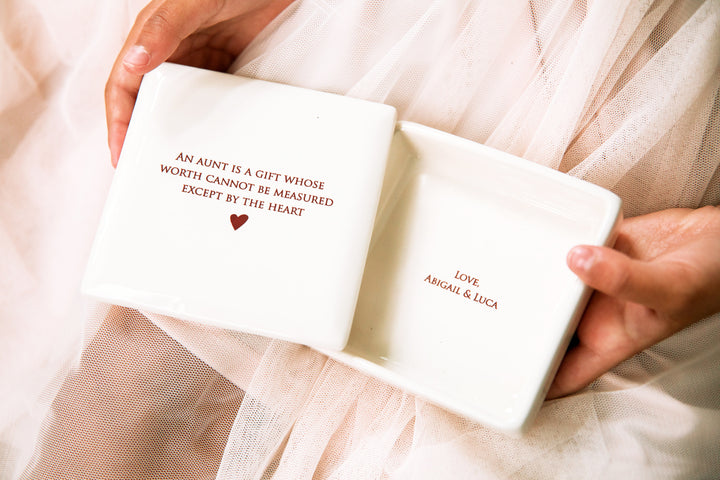 AN AUNT IS A GIFT WHOSE
WORTH CANNOT BE MEASURED
EXCEPT BY THE HEART
LOVE,
ABIGAIL & LUCA